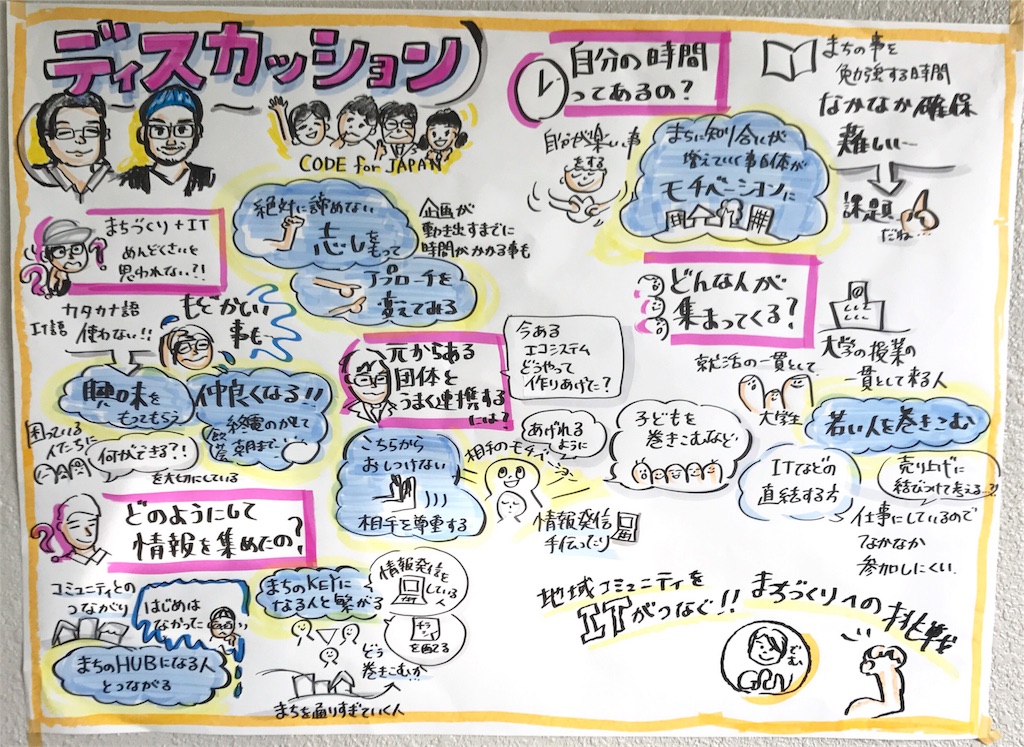 ディスカッション
CODE for JAPAN
まちづくり+IT
めんどくさいを
思われない?!
カタカナ語
IT語
使わない!!
もどかしい
事も
興味を
もってもらう
仲良くなる!!
終電のがして
飲み会
朝まで…
困っている
人たちに
何ができる?!
を大切にしている
絶対に諦めない
志しを
もって
アプローチを
変えてみる
企画が
動き出すまでに
時間がかかる事も
元からある
団体と
うまく連携する
には?
今ある
エコシステム
どうやって
作りあげた?
こちらから
おしつけない
相手を尊重する
あげれる
ように
相手のモチベーション
情報発信
手伝ったり
どのようにして
情報を集めたの?
コミュニティとの
つながり
はじめは
なかった
まちのHUBになる人
とつながる
まちのKEYに
なる人と繋がる
情報発信を
している
人
チラシ
を配る
どう
巻きこむか
まちを通りすぎていく人
自分の時間
ってあるの?
自分が楽しい事
をする
まちに知り合いが
増えていく事自体が
モチベーションに
まちの事を
勉強する時間
なかなか確保
難しい…
課題
だね…
どんな人が
集まってくる?
就活の一貫として
大学生
大学の授業の
一貫として来る人
若い人を巻きこむ
子どもを
巻きこむなど
ITなどの
直結する方
売り上げに
結びつけて考える…?!
仕事にしているので
なかなか
参加しにくい
地域コミュニティを
ITがつなぐ!!
まちづくりへの
挑戦
でむ